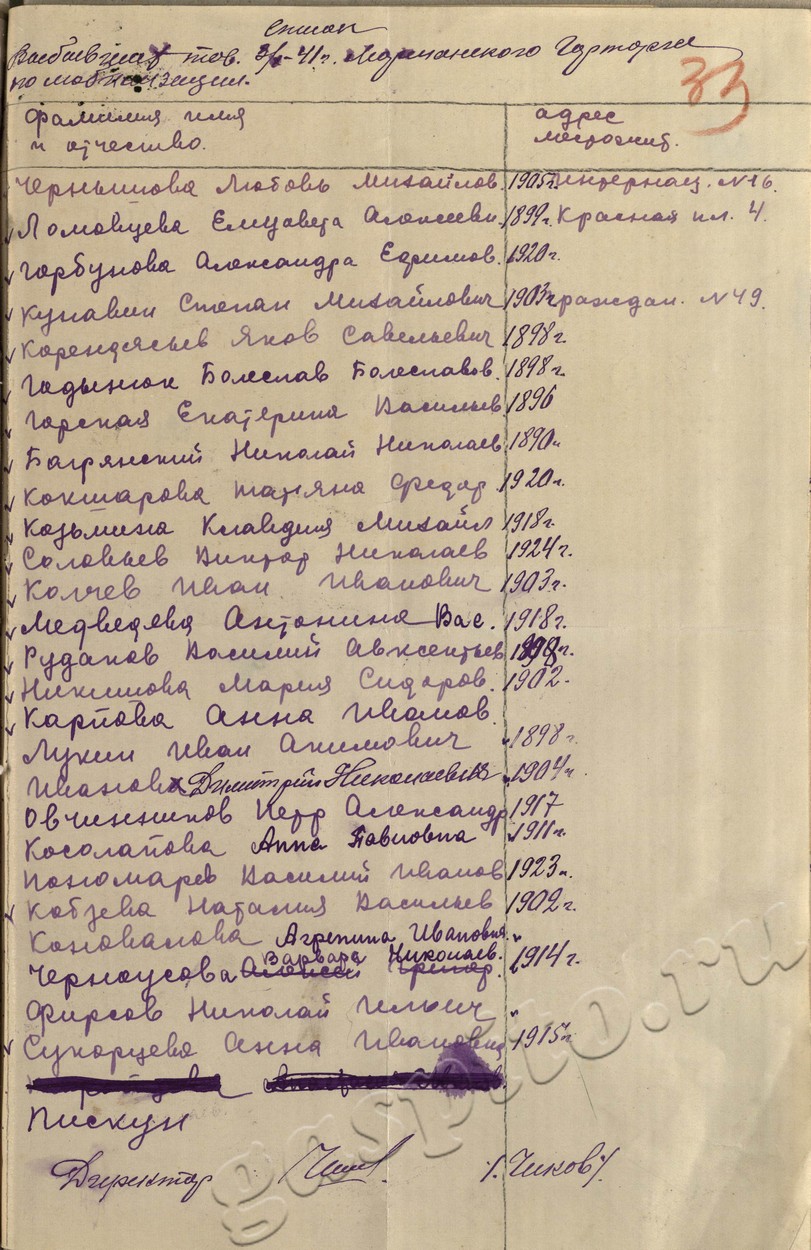 Список
тов. 3/-41г. Моршанского Горторга
по мобилизации.
33
фамилия имя и отчество.
адрес местожит.
Чернышова Любовь Михайлов. 1905г. интернац. №16.
Ломовцева Елизавета Алексеевн. 1899г. Красная пл. 4.
Горбунова Александра Ефимов. 1920г.
Кунавин Степан Михайлович 1903г. граждан. №49.
Корендясьев Яков Савельевич 1898г.
Гадынюк Болеслав Болеславов. 1898г.
Горская Екатерина Васильев 1896
Багрянский Николай Николаев 1890г
Кокшарова Татьяна Федор. 1920г.
Козьмина Клавдия Михайл 1918г.
Соловьев Виктор Николаев 1924г.
Колчев Иван Иванович 1903г.
Медведева Антонина Вас. 1918г.
Рудаков Василий Авксентьев 1898г.
Никишова Мария Сидоров. 1902.
Карпова Анна Иванов.
Лукин Иван Акимович 1898г.
Иванов Димитрий Николаевич 1904г
Овчинников Петр Александр 1917
Косолапова Анна Павловна 1911г.
Пономарев Василий Иванов 1923г.
Кобзева Наталия Васильев 1902г.
Коновалова Агрепина Ивановна "
Варвара Николаев.
Черноусова Алексей Григор. 1914г.
Фирсов Николай Ильич "
Сухорцева Анна Ивановна 1915г
Пискун
Директор /Чиков/.
gaspito.ru